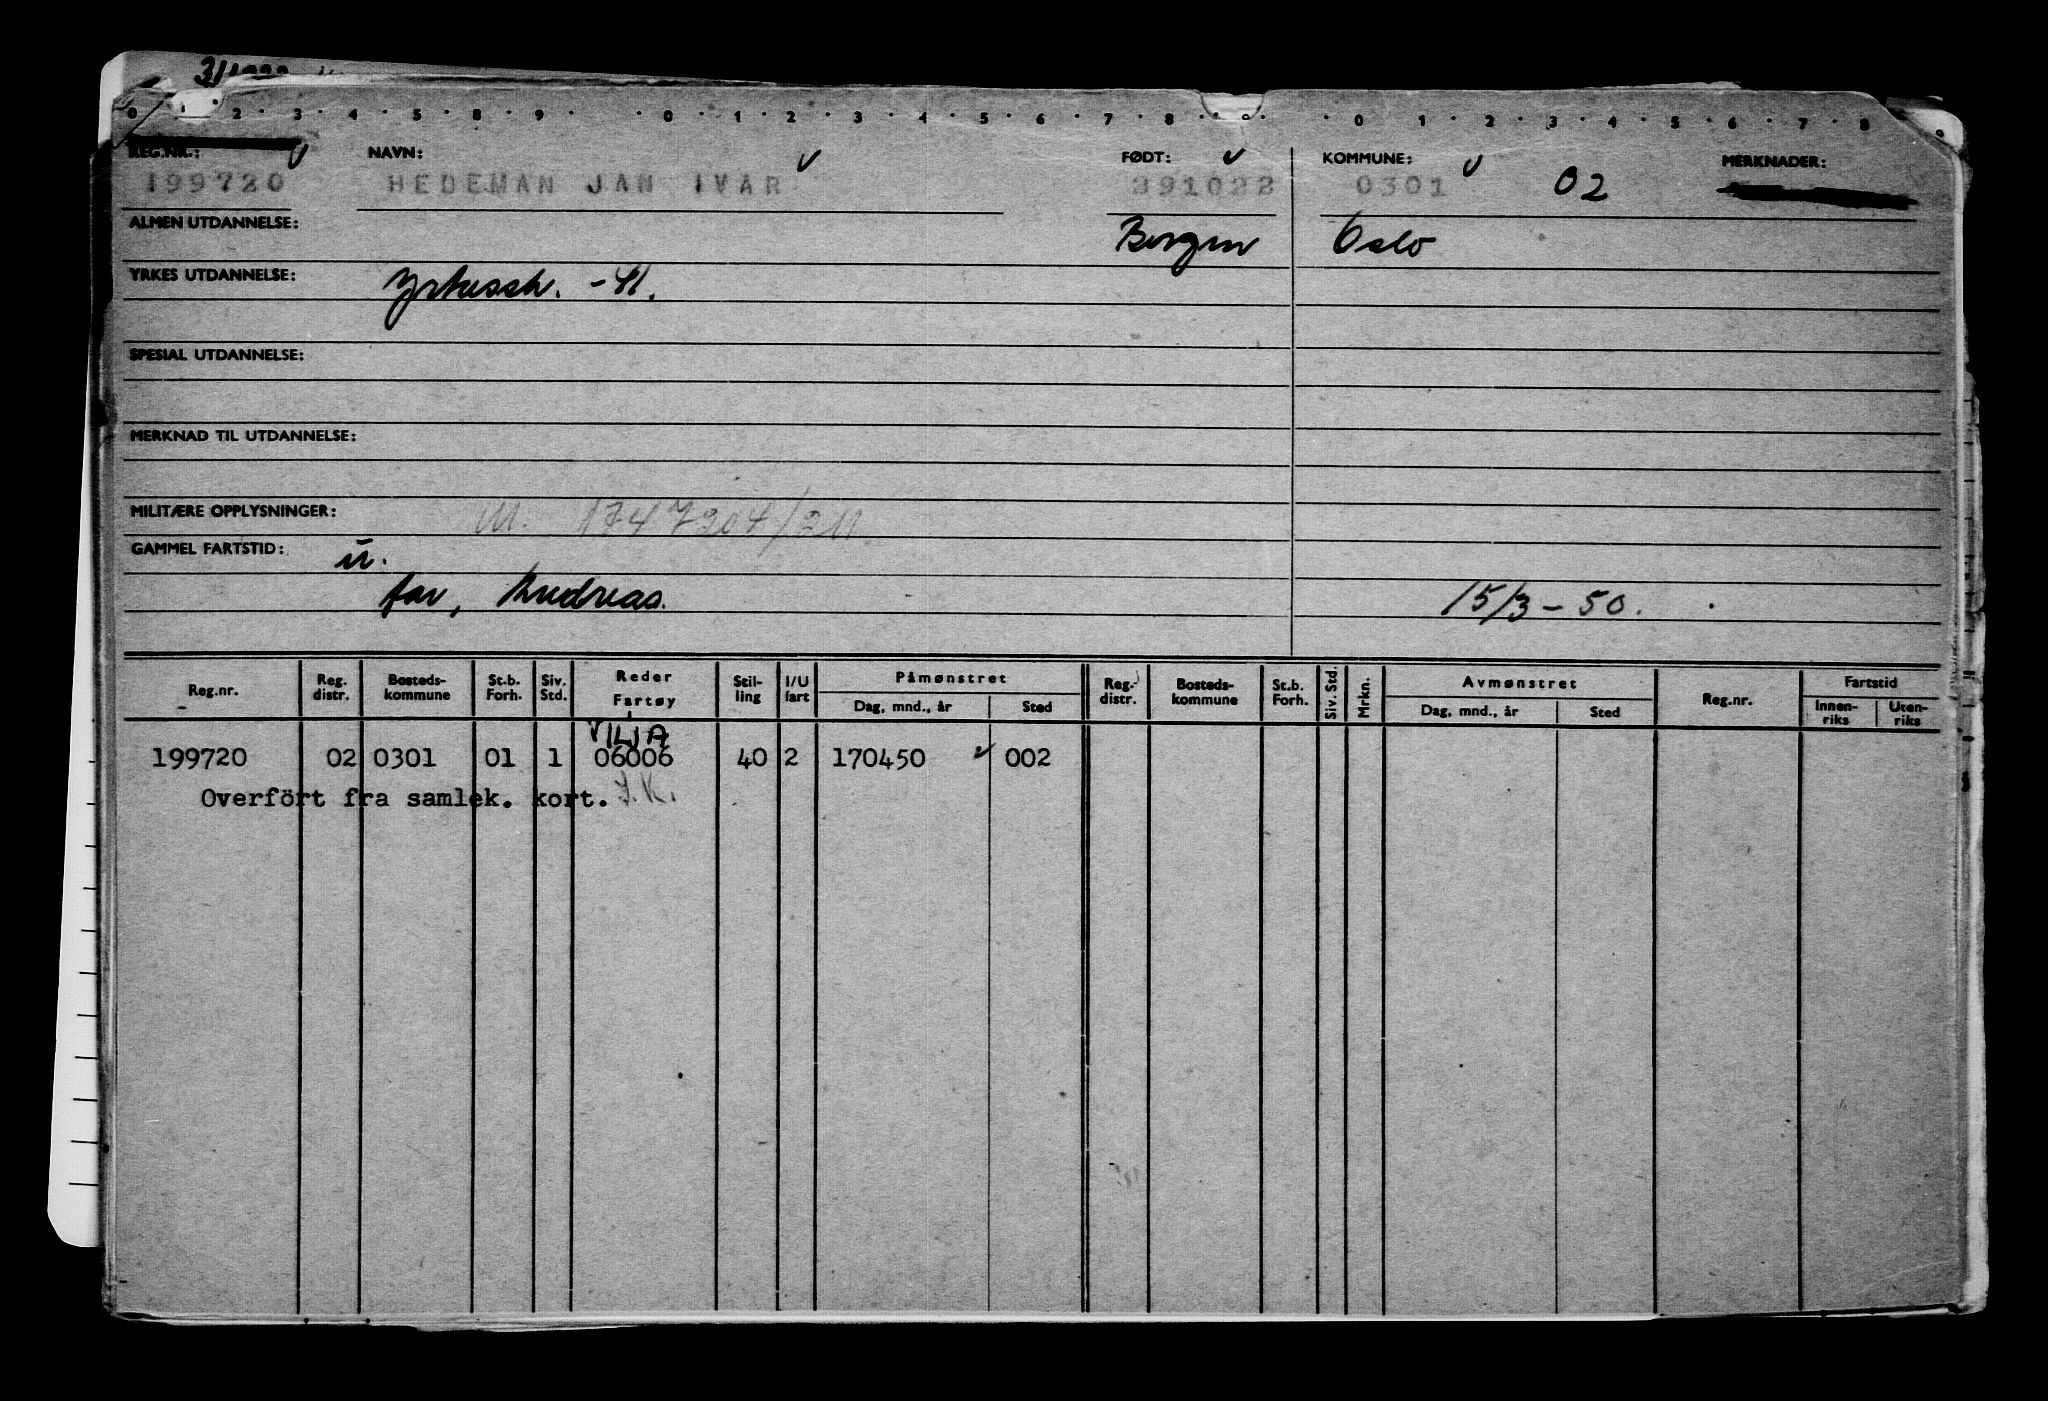 0 1 · 2 · 3 · 4 · 5 · 8 · 9 · · 0 · 1 · 2 · 3 · 4 · 5 · 6 · 7 · 8 · 9 · · 0 · 1 · 2 · 3 · 4 · 5 · 6 · 7 · 8 · 9
REG.NR.: NAVN: FØDT: KOMMUNE: MERKNADER:
199720 HEDEMAN JAN IVAR 291022 0301 02
ALMEN UTDANNELSE: Bergen Oslo
YRKES UTDANNELSE: Yrkessk. -41.
SPESIAL UTDANNELSE:
MERKNAD TIL UTDANNELSE:
MILITÆRE OPPLYSNINGER: M. 1747204/211.
GAMMEL FARTSTID: u.
far, Andreas. 15/3 - 50.
Reg.nr. Reg. distr. Bosteds-kommune St.b. Forh. Siv. Std. Reder Fartøy Stil-ling I/U fart Påmønstret Dag, mnd., år Sted Reg. distr. Bosteds-kommune St.b. Forh. Siv. Std. Mrkn. Avmønstret Dag, mnd., år Sted Reg.nr. Fartstid Innen-riks Uten-riks
VILJA
199720 02 0301 01 1 06006 40 2 170450 002
Overfört fra samlek. kort. J.K.